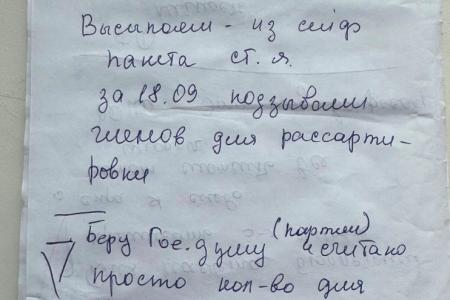 Высыпаем - из сейф
пакета ст. я.
за 18.09 подзываем
членов для рассарти-
ровки
Беру Гос. думу (партии) и считаю
просто кол-во для